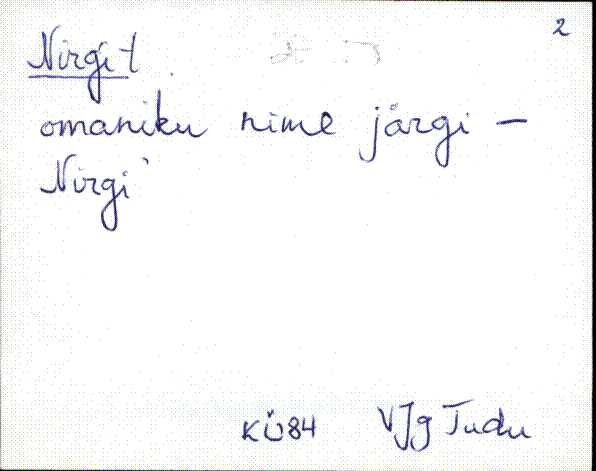 2
Nirgi-t
omaniku nime järgi –
Nirgi
KÜ84 VJg Tudu